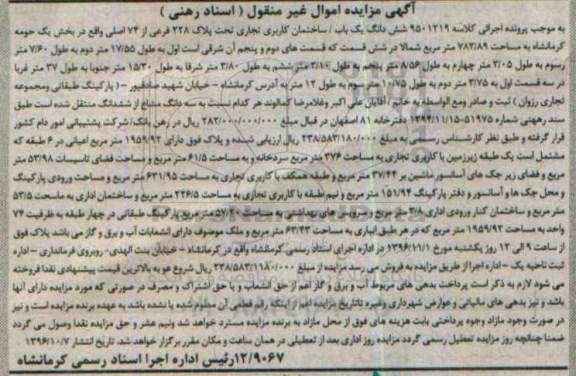 آگهی مزایده اموال غیر منقول ( اسناد رهنی )
به موجب پرونده اجرائی کلاسه ۹۵۰۱۲۱۹ شش دانگ یک باب / ساختمان کاربری تجاری تحت پلاک ۲۲۸ فرعی از ۷۴ اصلی واقع در بخش یک حومه
کرمانشاه به مساحت ۷۸۳/۸۹ متر مربع شمالا در شش قسمت که قسمت های دوم و پنجم آن شرقی است اول به طول ۱۷/۵۵ متر دوم به طول ۷/۶۰ متر
رسوم به طول ۳/۰۵ متر چهارم به طول ۸/۵۶ متر پنجم به طول ۳/۱۰ متر ششم به طول ۳/۸۰ متر شرقا به طول ۱۵/۳۰ متر جنوبا به طول ۳۷ متر غربا
در سه قسمت اول به ۳/۷۵ متر دوم به طول ۱۰/۷۵ متر سوم به طول ۱۲ متر به آدرس کرمانشاه - خیابان شهید صادقپور -( پارکینگ طبقاتی ومجموعه
تجاری رزوان ) ثبت و صادر ومع الواسطه به خانم / آقایان علی اکبر وغلامرضا کمالوند هر کدام نسبت به سه دانگ مشاع از ششدانگ منتقل شده است طبق
سند رهنی شماره ۵۱۹۷۵-۱۳۹۴/۱۱/۱۵ دفترخانه ۸۱ اصفهان در قبال مبلغ ۲۸۲/۰۰۰/۰۰۰/۰۰۰ ریال در رهن بانک/ شرکت پشتیبانی امور دام کشور
قرار گرفته و طبق نظر کارشناس رسمی به مبلغ ۲۳۸/۵۸۳/۱۸۰/۰۰۰ ریال ارزیابی شده و پلاک فوق دارای ۱۹۵۹/۹۲ متر مربع اعیانی در ۶ طبقه که
مشتمل است یک طبقه زیرزمین با کاربری تجاری به مساحت ۳۷۶ متر مربع سردخانه و به مساحت ۶۱/۵ متر مربع و فضای تاسیسات ۵۳/۹۸ متر
مربع و فضای زیر جک های آسانسور ماشین بر ۳۷/۴۴ متر مربع و طبقه همکف با کاربری تجاری به مساحت ۶۳۱/۹۵ متر مربع و مساحت ورودی پارکینگ
و محل جک ها و آسانسور و دفتر پارکینگ ۱۵۱/۹۴ متر مربع ( نیم طبقه با کاربری تجاری به مساحت ۲۲۶/۵ متر مربع و ساختمان اداری به مساحت ۵۳/۵
متر مربع و ساختمان کنار ورودی اداری ۳/۸ متر مربع و سرویس های بهداشتی به مساحت ۵۷/۳۰ متر مربع پارکینگ طبقاتی در چهار طبقه به ظرفیت ۷۴
واحد به مساحت ۱۹۵۹/۹۲ متر مربع که در هر طبق انباری به مساحت ۶۳/۴۳ متر مربع و ملک موصوف دارای انشعابات آب و برق و گاز می باشد پلاک فوق
از ساعت ۹ الی ۱۲ روز یکشنبه مورخ ۱۳۹۶/۱۱/۱ در اداره اجرای اسناد رسمی کرمانشاه واقع در کرمانشاه - خیابان بنت الهدی- روبروی فرمانداری - اداره
ثبت ناحیه یک - اداره اجرا از طریق مزایده به فروش می رسد مزایده از مبلغ ۲۳۸/۵۸۳/۱۱۸۰/۰۰۰ ریال شروع هو به بالاترین قیمت پیشنهادی نقدا فروخته
می شود لازم به ذکر است پرداخت بدهی های مربوط آب و برق و گاز اعم از حق انشعاب و یا حق اشتراک و مصرف در صورتی که مورد مزایده دارای آنها
باشد و نیز بدهی های مالیاتی و عوارض شهرداری وغیره تاتاریخ مزایده اعم از اینکه رقم قطعی آن معلوم شده یا نشده باشد به عهده برنده مزایده است و نیز
در صورت وجود مازاد وجوه پرداختی بابت هزینه های فوق از محل مازاد به برنده مزایده مسترد خواهد شد ونیم عشر و حق مزایده نقدا وصول می گردد
ضمنا چنانچه روز مزایده تعطیل رسمی گردد مزایده روز اداری بعد از تعطیلی در همان ساعت و مکان مقرر برگزار خواهد شد. تاریخ انتشار ۱۳۹۶/۱۰/۷
۱۲/۹۰۶۷رئیس اداره اجرا اسناد رسمی کرمانشاه